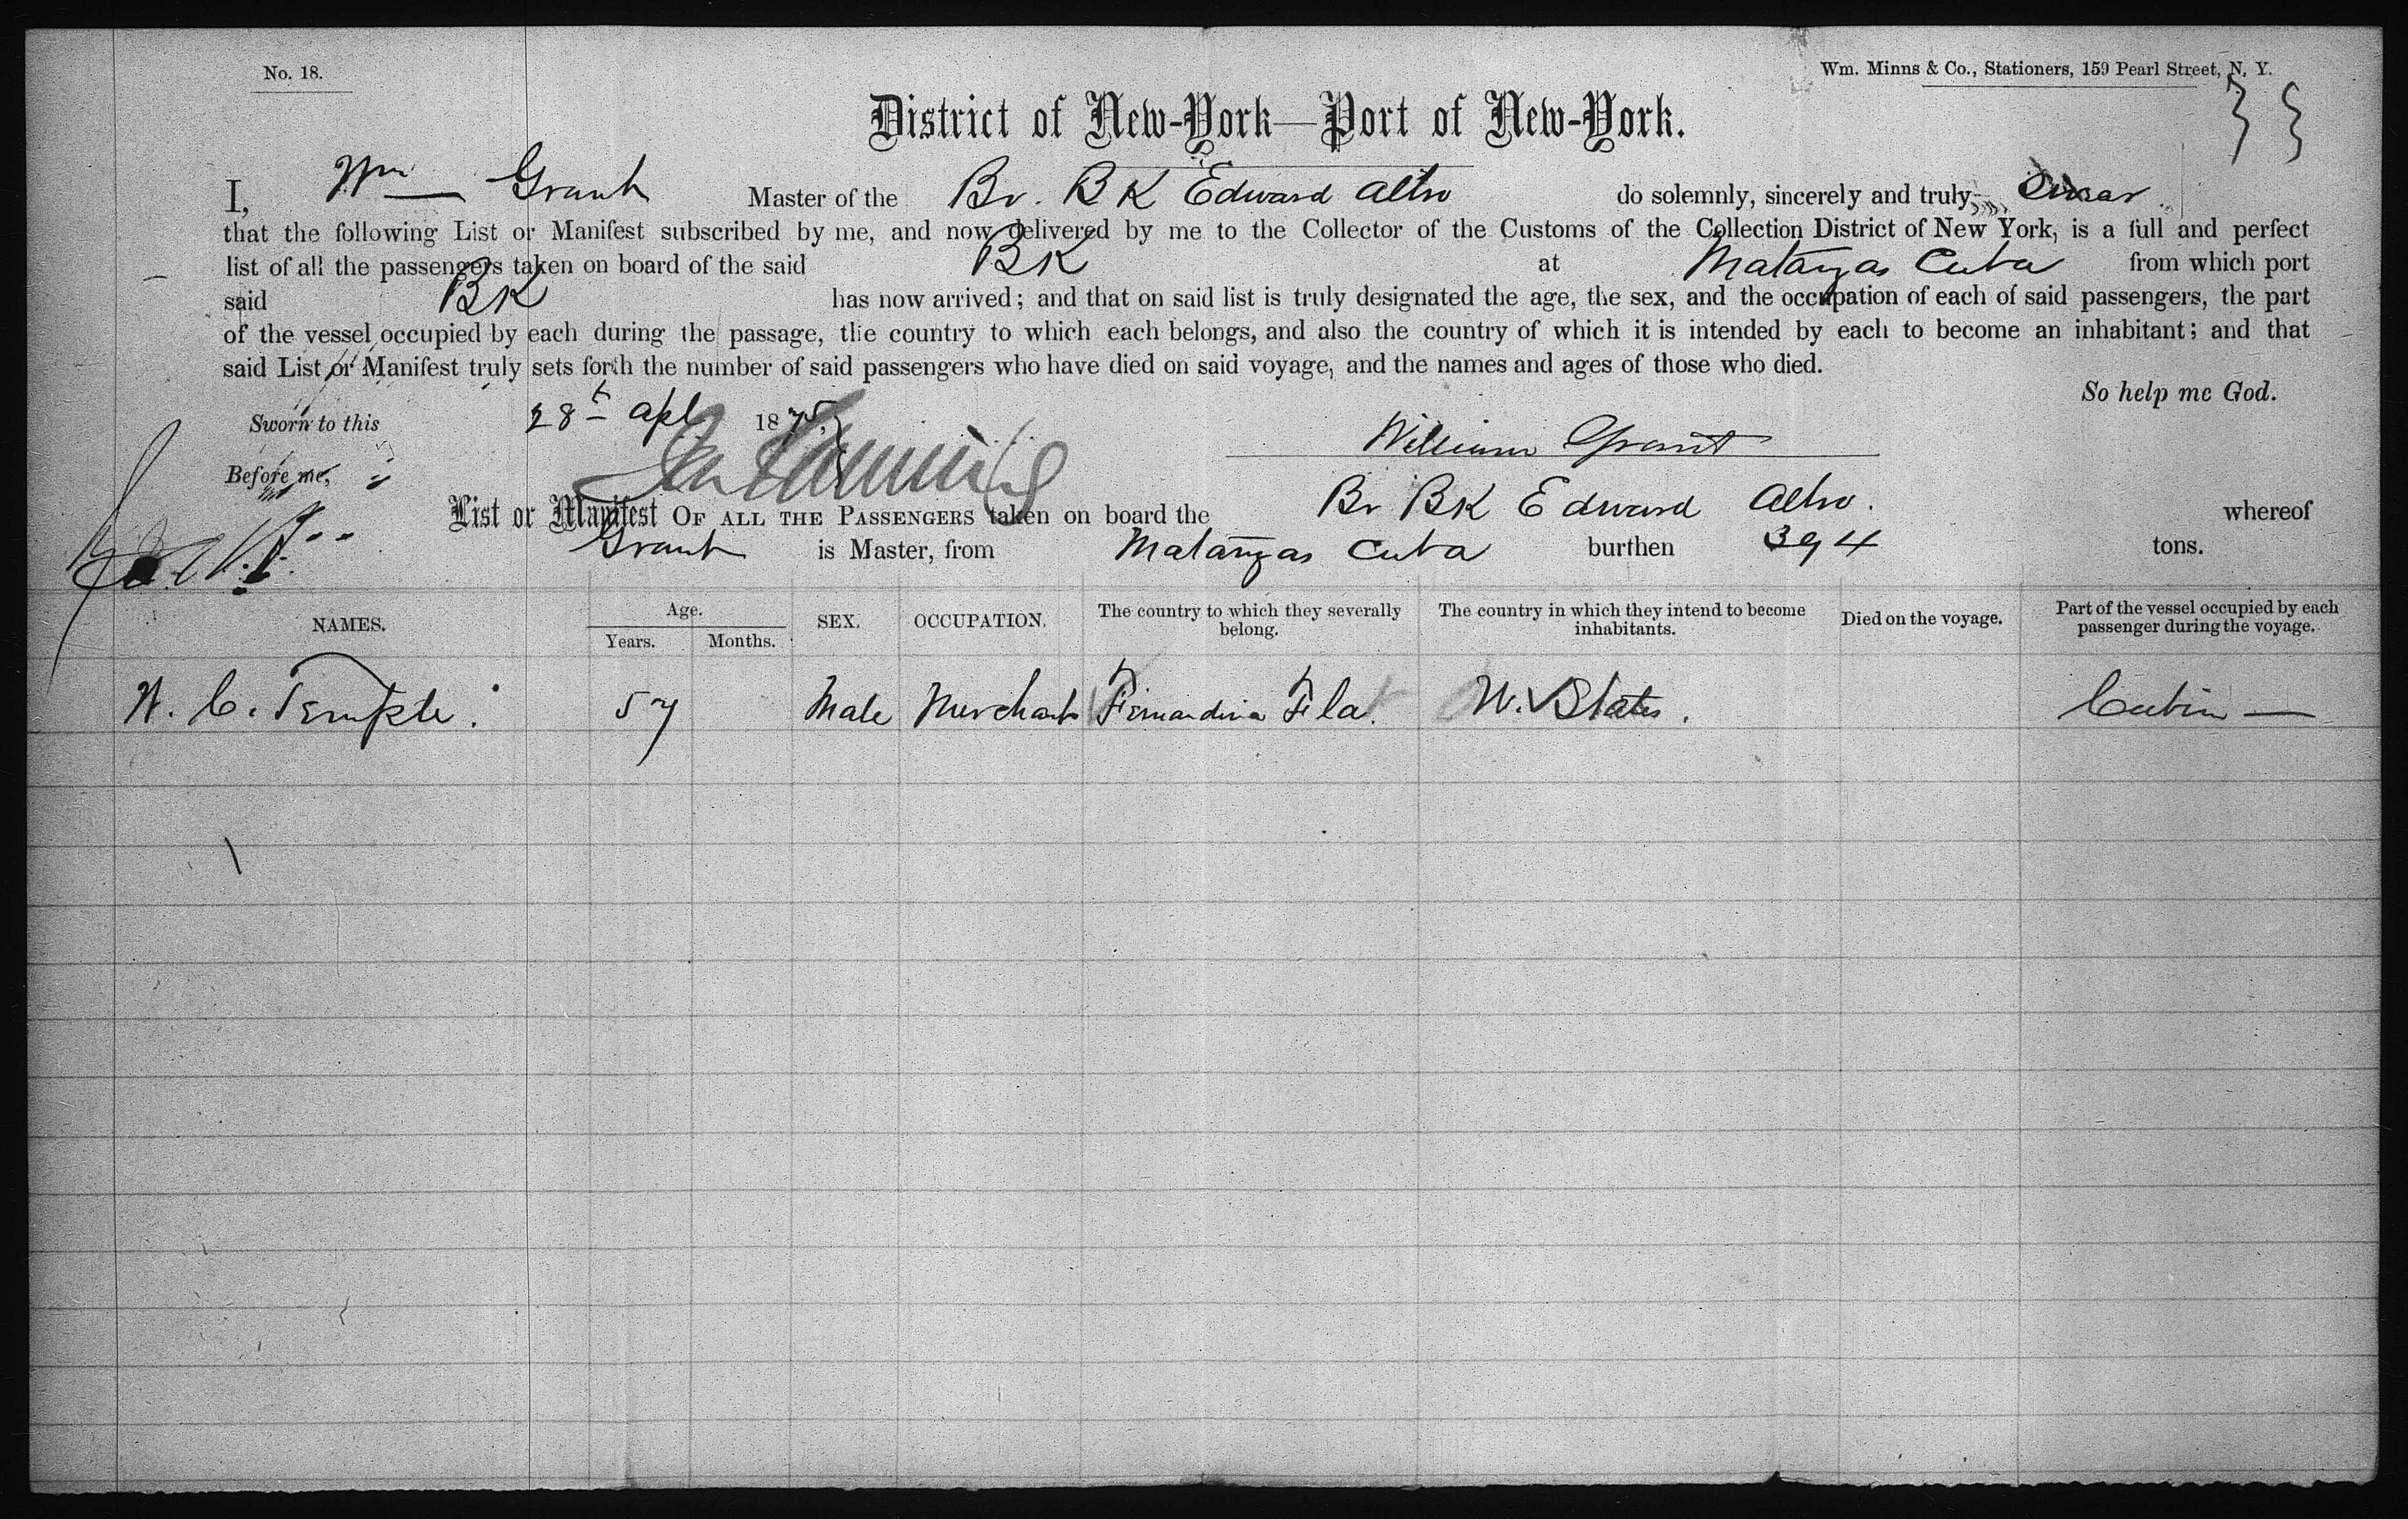 No. 18.
Wm. Minns & Co., Stationers, 159 Pearl Street, N. Y.
District of New-York—Port of New-York.
I, Wm Grant Master of the Br. BK Edward Altro do solemnly, sincerely and truly Swear
that the following List or Manifest subscribed by me, and now delivered by me to the Collector of the Customs of the Collection District of New York, is a full and perfect
list of all the passengers taken on board of the said BK at Matanzas Cuba from which port
said BK has now arrived; and that on said list is truly designated the age, the sex, and the occupation of each of said passengers, the part
of the vessel occupied by each during the passage, the country to which each belongs, and also the country of which it is intended by each to become an inhabitant; and that
said List or Manifest truly sets forth the number of said passengers who have died on said voyage, and the names and ages of those who died.
So help me God.
Sworn to this 28t Apl 1875,
William Grant
Before me,
List or Manifest OF ALL THE PASSENGERS taken on board the Br BK Edward Altro. whereof
Grant is Master, from Matanzas Cuba burthen 394 tons.
NAMES. Age. Years. Months. SEX. OCCUPATION. The country to which they severally belong. The country in which they intend to become inhabitants. Died on the voyage. Part of the vessel occupied by each passenger during the voyage.
C. Temple. 57 Male Merchant Fernandina Fla. U. States. Cabin —